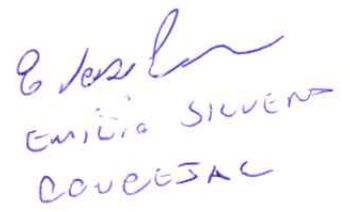 EMILIO SILVERA
CONCEJAL